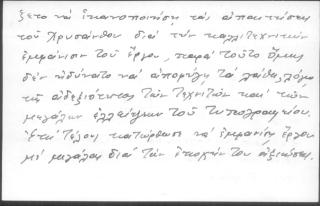 ξετο νά ἱκανοποιήσῃ τάς ἀπαιτήσεις
τοῦ Χρυσάνθου διά τήν καλλιτεχνικήν
ἐμφάνισιν τοῦ ἔργου, παρά τοῦτο ὅμως
δέν ἠδύνατο νά ἀποφύγῃ τά λάθη λόγῳ
τῆς ἀδεξιότητος τῶν τεχνιτῶν καί τῶν
μεγάλων ἐλλείψεων τοῦ τυπογραφείου.
Ἐπί τέλους κατώρθωσε νά ἐμφανίσῃ ἔργον
μέ μεγάλας διά τήν ἐποχήν του ἀξιώσεις.